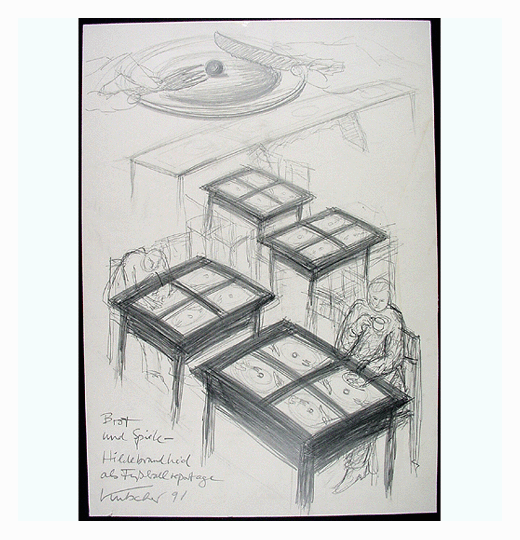 Brot
und Spiele –
Hildebrandlied
als Fußballreportage
Kutscher 91